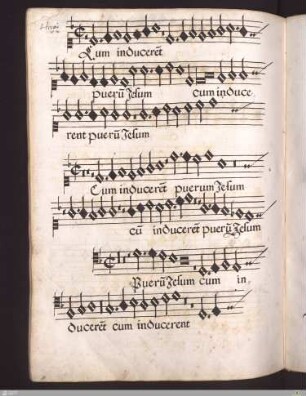 Cum induceret̄
puerū Jesum cum induce
rent puerū Jesum
Cum inducerēt puerum Jesum
cū inducerēt puerū Jesum
Puerū Jesum cum in,
ducerēt cum inducerent